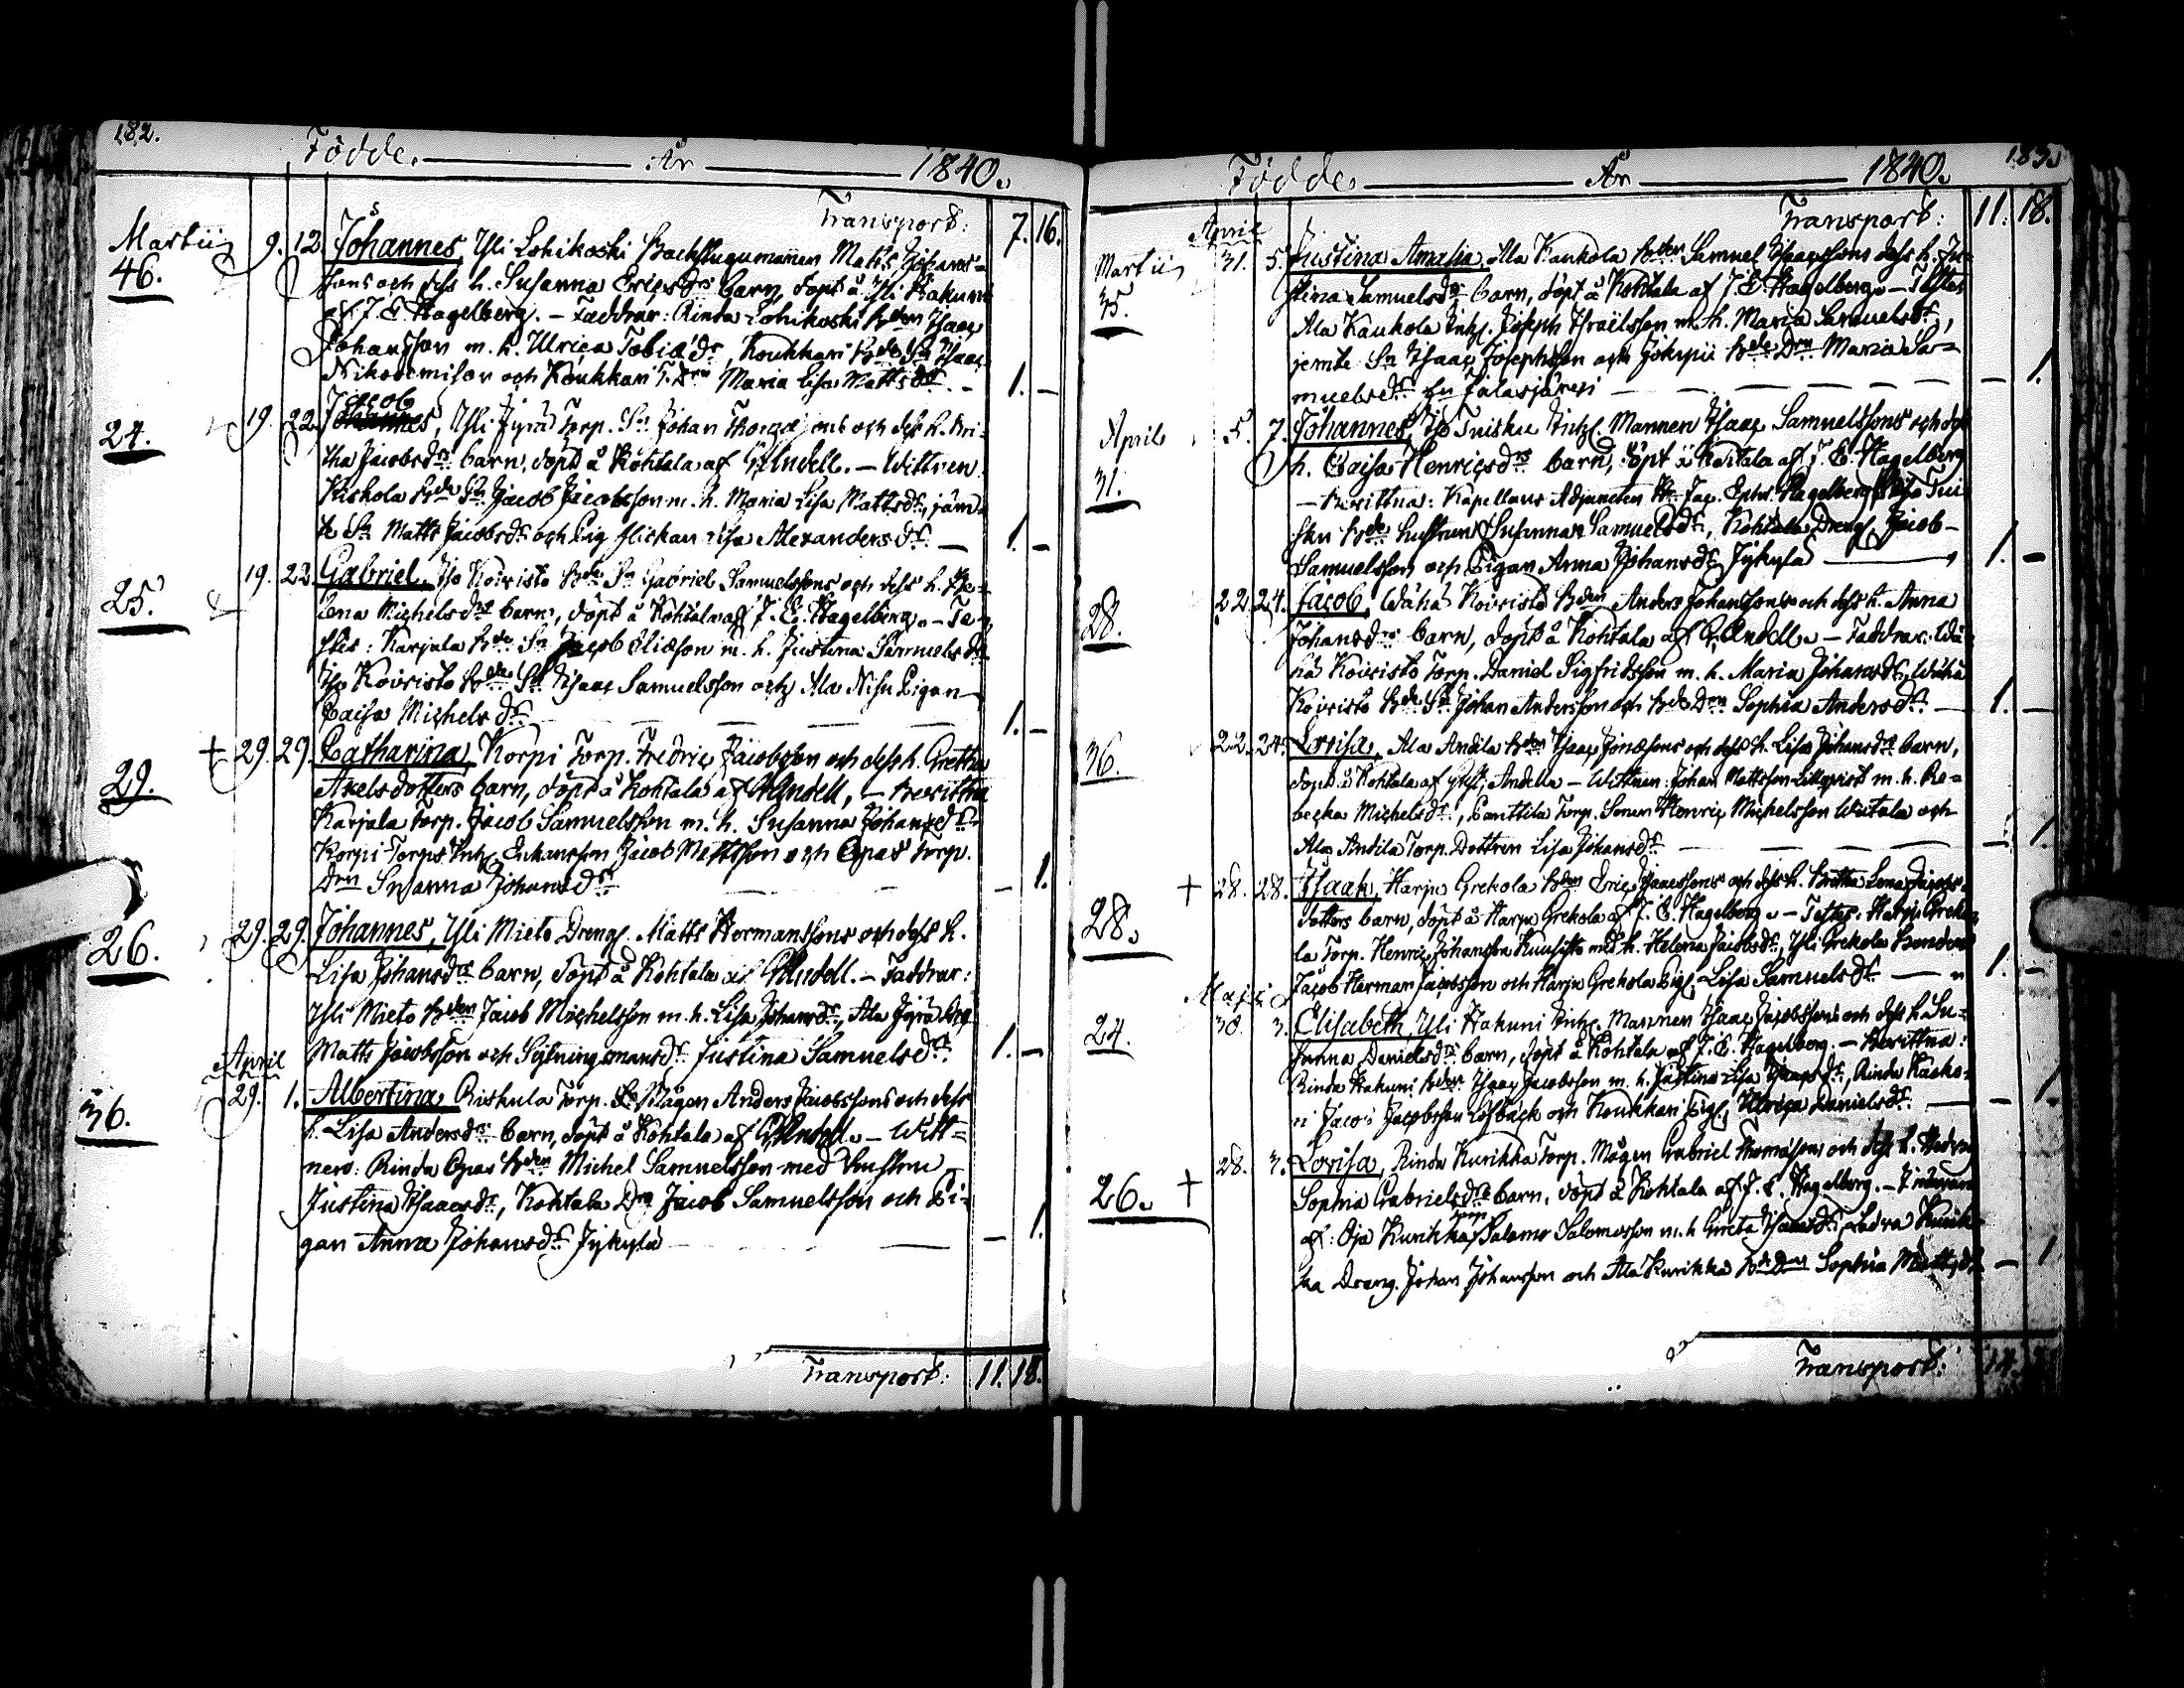 182.
Födde. År 1840.
Transport: 7. 16.
Martii 9. 12. Johannes, Yli Lohikoski Backstugumannen Matts Johans-
46. sons och dess h. Susanna Ericsdrs barn, döpt å Yli Hakuni
af J. E. Hagelberg. - Faddrar: Rinda Lohikoski Bden Isaac
Johansson m. h. Ulrica Tobiædr, Koukkari Bde Sn Isaac
Nikodemison och Koukkari Drn Maria Lisa Mattsdr. - 1. -
Jacob
24. 19. 22. Johannes, Yli Jyrä Torp. Sn Johan Thomæsons och dess h. Bri-
tha Jacobsdrs barn, döpt å Kohtala af G. Andell. - Wittnen
Kiskola Bde Sn Jacob Jacobsson m. h. Maria Lisa Mattsdr, jäm-
te Sn Matts Jacobsdr och Pig flickan Lisa Alexandersdr. - 1. -
25. 19. 22. Gabriel, Iso Koivisto Bde Sn Gabriel Samuelssons och dess h. He-
lena Michelsdrs barn, döpt å Kohtala af J. E. Hagelberg. - Te-
stes: Karjula Bde Sn Jacob Eliæson m. h. Justina Samuelsdr
Iso Koivisto Bde Sn Isaac Samuelsson och Ala Nisu Pigan
Caisa Michelsdr. 1. -
29. + 29. 29. Catharina, Korpi Torp. Fredric Jacobsson och dess h. Gretha
Axelsdotters barn, döpt å Kohtala af G. Andell, - Bevittna
Karjula Torp. Jacob Samuelsson m. h. Susanna Johansdr
Korpi Torps Inh. Enkansson Jacob Mattsson och Opas Torp.
Drn Susanna Johansdr. - 1.
26. 29. 29. Johannes, Yli Mieto Dreng. Matts Hermanssons och dess h.
Lisa Johansdrs barn, döpt å Kohtala af G. Andell. - Faddrar:
Yli Mieto Bden Jacob Michelsson m. h. Lisa Johansdr, Ala Jyrä Drg
Matts Jacobsson och Sytningsmansdr Justina Samuelsdr. 1. -
April
36. 29. 1. Albertina, Riskula Torp. Mågen Anders Jacobssons och dess
h. Lisa Andersdrs barn, döpt å Kohtala af G. Andell. - Witt-
nen: Rinda Opas Bden Michel Samuelsson med hustru
Justina Isaacsdr, Kohtala Drg Jacob Samuelsson och Pi-
gan Anna Johansdr Jyhylä - 1.
Transport: 11. 18.
183.
Födde. År 1840.
Transport: 11. 18.
April
Martii 31. 5. Justina Amalia, Ala Kaukola Bden Samuel Isaacssons dess h. Ju-
35. stina Samuelsdrs barn, döpt å Kohtala af J. E. Hagelberg. - Testes
Ala Kaukola Inh. Joseph Israelsson m. h. Maria Samuelsdr,
jemte Sn Isaac Josephsson och Jokipii Bde Drn Maria Sa-
muelsdr fr Jalasjärvi - 1.
April 5. 7. Johannes, Iso Tuisku Inh. Mannen Isaac Samuelssons och dess
31. h. Caisa Henricsdrs barn, döpt å Kohtala af J. E. Hagelberg
- Bevittna: Kapellans Adjuncten Hr Jac. Ephr. Hagelberg, Iso Tui-
sku Bde hustrun Susanna Samuelsdr, Kohtala Dreng Jacob
Samuelsson och Pigan Anna Johansdr Jyhylä 1. -
28. 22. 24. Jacob, Wähä Koivisto Bden Anders Johanssons och dess h. Anna
Johansdrs barn, döpt å Kohtala af G. Andell. - Faddrar: Wä-
hä Koivisto Torp. Daniel Sigfridsson m. h. Maria Johansdr, Wähä
Koivisto Bde Sn Johan Andersson och Bde Drn Sophia Andersdr. - 1. -
36. 22. 24. Lovisa, Ala Andila Bden Isaac Jonæsons och dess h. Lisa Johansdrs barn,
döpt å Kohtala af Andell. - Wittnen: Johan Mattsson Lillqvist m. h. Re-
becka Michelsdr, Panttila Torp. Sonen Henric Michelsson Wiitala och
Ala Andila Torp. Dottren Lisa Johansdr. - 1.
28. + 28. 28. Isaak, Harju Grekola Bden Eric Isaacssons och dess h. Britha Lena Jacobs-
dotters barn, döpt å Harju Grekola af J. E. Hagelberg. - Testes: Harju Greko-
la Torp. Henric Johansson Kuusisto med h. Helena Jacobsdr, Yli Grekola Bonden
Jacob Herman Jacobsson och Harju Grekola Pig. Lisa Samuelsdr. 1. -
Maji
24. 30. 3. Elisabeth, Yli Hakuni Inh. Mannen Isaac Jacobssons och dess h. Su-
sanna Danielsdrs barn, döpt å Kohtala af J. E. Hagelberg. - Bevittna:
Rinda Hakuni Bden Isaac Jacobsson m. h. Justina Lisa Isaacsdr, Rinda Kasko-
ri Jacob Jacobsson Löfbäck och Koukkari Pig. Ulrica Danielsdr. - 1.
26. + 28. 3. Lovisa, Rinda Kurikka Torp. Mågen Gabriel Thomæsons och dess h. Hedvig
Sophia Gabrielsdrs barn, döpt å Kohtala af J. E. Hagelberg. -
af: Oja Kurikka Torp. Salomo Salomosson m. h. Greta Isaacsdr, Ladva Kurik-
ka Dreng. Johan Johansson och Ala Kurikka Bde Drn Sophia Mattsdr. - 1
Transport: 14.